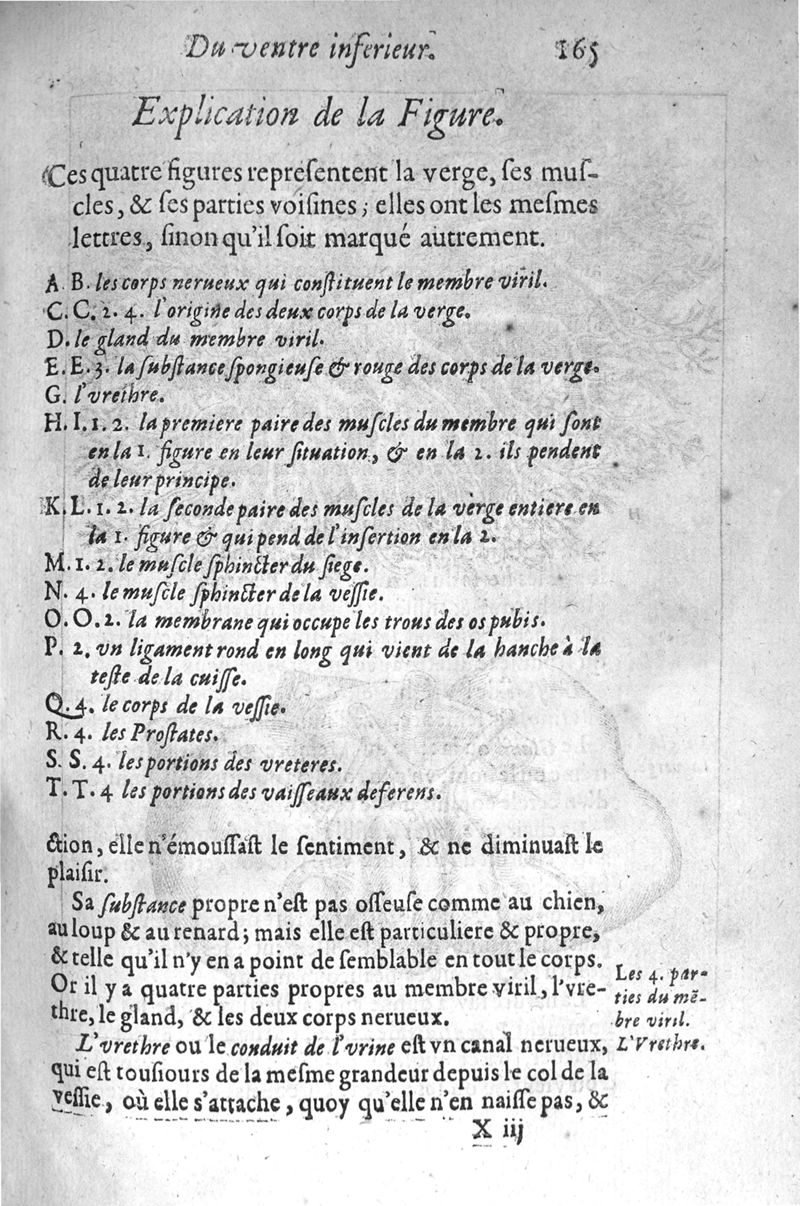 Du ventre inferieur. 165
Explication de la Figure.
Ces quatre figures repreſentent la verge, ſes muſ-
cles, & ſes parties voiſines; elles ont les meſmes
lettres, ſinon qu'il ſoit marqué autrement.
A. B. les corps nerueux qui conſtituent le membre viril.
C. C. 2. 4. l'origine des deux corps de la verge.
D. le gland du membre viril.
E. E. 3. la ſubſtance ſpongieuſe & rouge des corps de la verge.
G. l'vrethre.
H. I. 1. 2. la premiere paire des muſcles du membre qui ſont
en la 1. figure en leur ſituation, & en la 2. ils pendent
de leur principe.
K. L. 1. 2. la ſeconde paire des muſcles de la verge entiere en
la 1. figure & qui pend de l'inſertion en la 2.
M. 1. 2. le muſcle ſphincter du ſiege.
N. 4. le muſcle ſphincter de la veſſie.
O. O. 2. la membrane qui occupe les trous des os pubis.
P. 2. vn ligament rond en long qui vient de la hanche à la
teſte de la cuiſſe.
Q. 4. le corps de la veſſie.
R. 4. les Proſtates.
S. S. 4. les portions des vreteres.
T. T. 4 les portions des vaiſſeaux deferens.
ction, elle n'émouſſaſt le ſentiment, & ne diminuaſt le
plaiſir.
Sa ſubſtance propre n'eſt pas oſſeuſe comme au chien,
au loup & au renard; mais elle eſt particuliere & propre,
& telle qu'il n'y en a point de ſemblable en tout le corps.
Or il y a quatre parties propres au membre viril, l'vre-
thre, le gland, & les deux corps nerueux.
Les 4. par-
ties du mẽ-
bre viril.
L'vrethre ou le conduit de l'vrine eſt vn canal nerueux,
L'Vrethre.
qui eſt touſiours de la meſme grandeur depuis le col de la
veſſie, où elle s'attache, quoy qu'elle n'en naiſſe pas, &
X iij